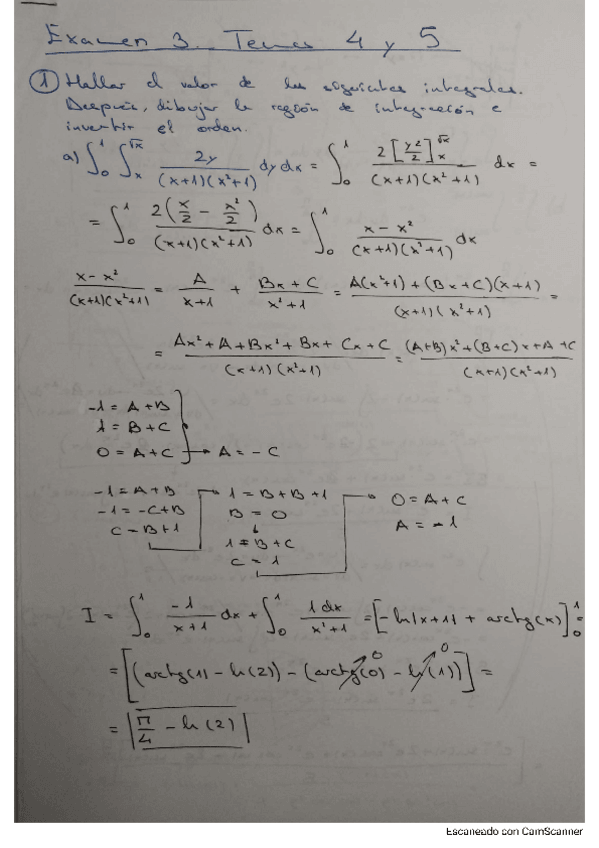 Examen 3. Temas 4 y 5
① Hallar el valor de las siguientes integrales.
Después, dibujar la región de integración e
invertir el orden.
a) ∫₀¹ ∫ₓ^√x 2y/((x+1)(x²+1)) dy dx = ∫₀¹ 2[y²/2]ₓ^√x/((x+1)(x²+1)) dx =
= ∫₀¹ 2(x/2 - x²/2)/((x+1)(x²+1)) dx = ∫₀¹ (x-x²)/((x+1)(x²+1)) dx
(x-x²)/((x+1)(x²+1)) = A/(x+1) + (Bx+C)/(x²+1) = (A(x²+1)+(Bx+C)(x+1))/((x+1)(x²+1)) =
= (Ax²+A+Bx²+Bx+Cx+C)/((x+1)(x²+1)) = ((A+B)x²+(B+C)x+A+C)/((x+1)(x²+1))
-1 = A+B
1 = B+C
0 = A+C → A = -C
-1 = A+B 1 = B+B+1 0 = A+C
-1 = -C+B B = 0 A = -1
C = B+1 ↓
1 = B+C
C = 1
I = ∫₀¹ -1/(x+1) dx + ∫₀¹ 1dx/(x²+1) = [-ln|x+1| + arctg(x)]₀¹ =
= [(arctg(1) - ln(2)) - (arctg(0) 0 - ln(1) 0)] =
= |π/4 - ln(2)|
Escaneado con CamScanner